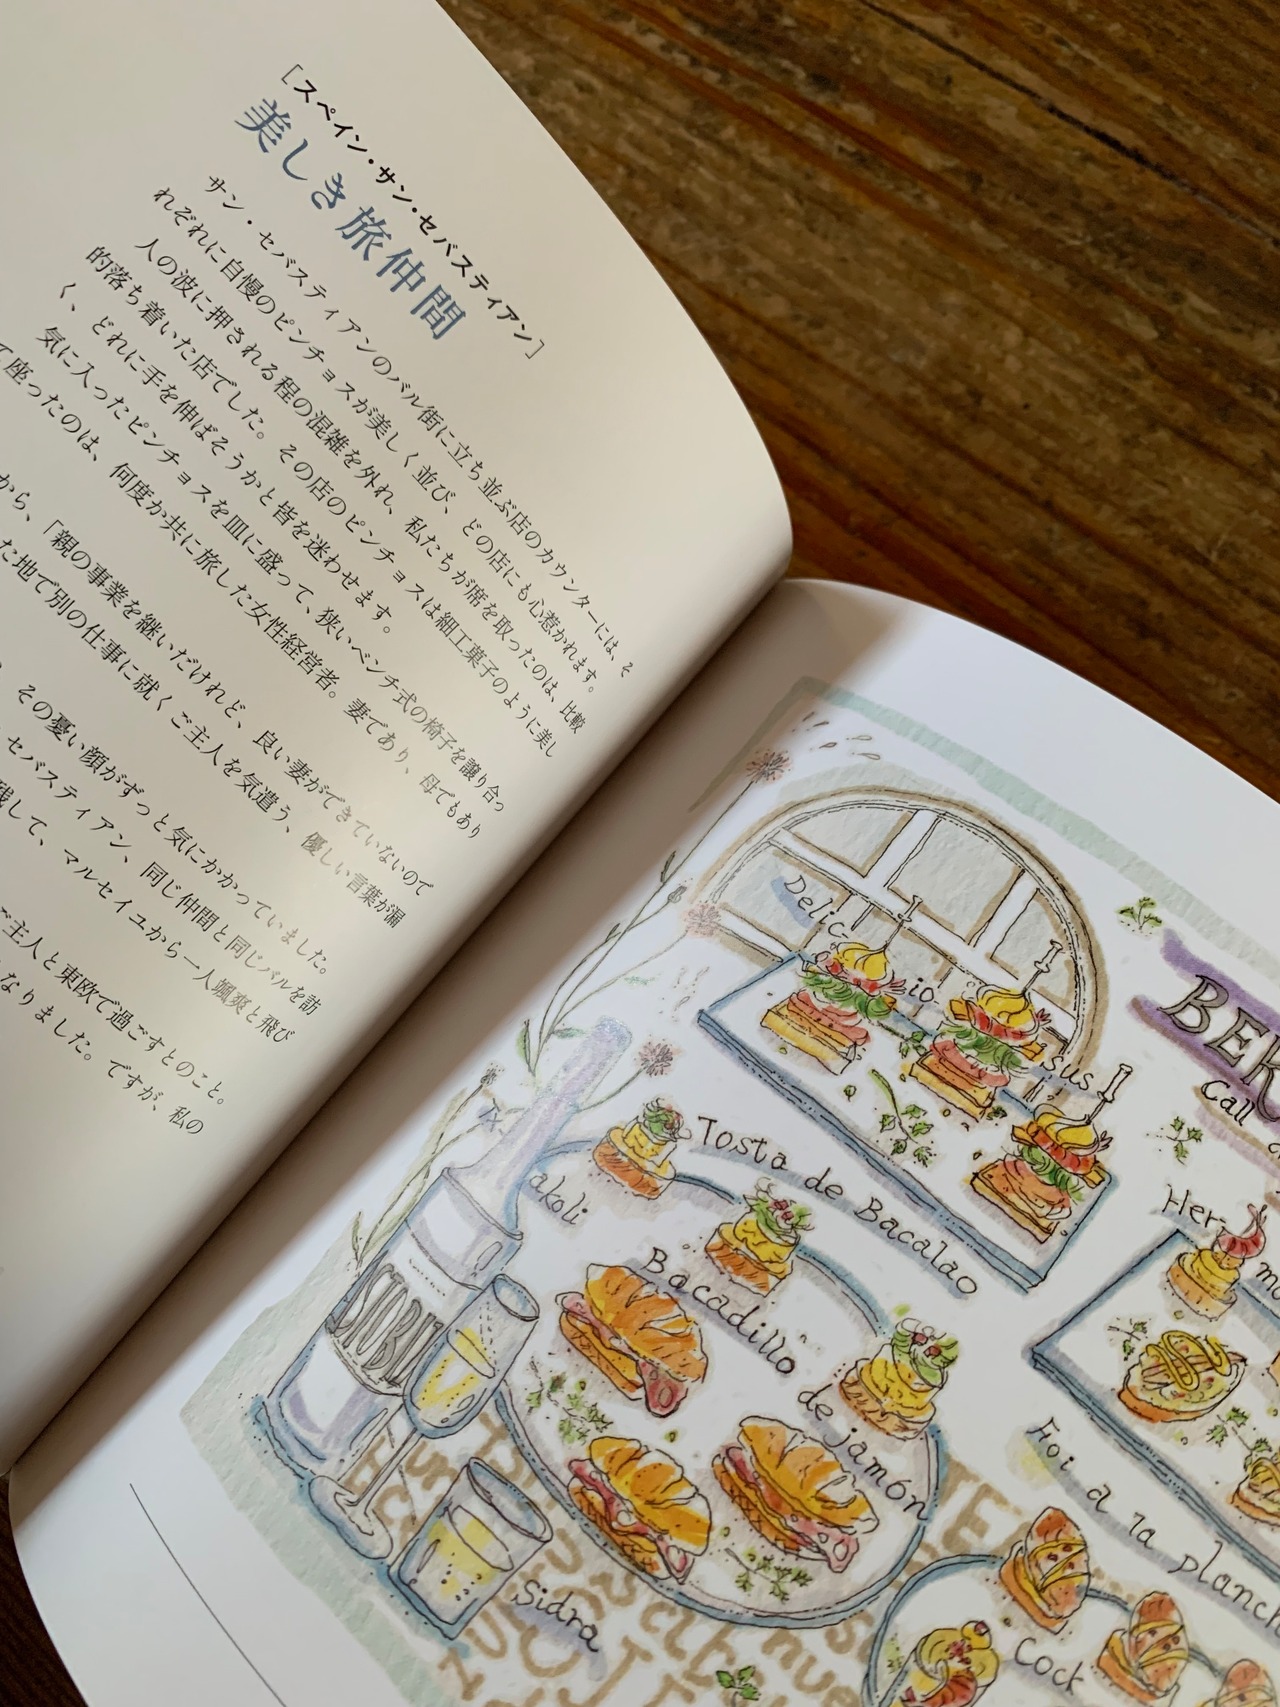 ［スペイン・サン・セバスティアン］
美しき旅仲間
サン・セバスティアンのバル街に立ち並ぶ店のカウンターには、そ
れぞれに自慢のピンチョスが美しく並び、どの店にも心惹かれます。
人の波に押される程の混雑を外れ、私たちが席を取ったのは、比較
的落ち着いた店でした。その店のピンチョスは細工菓子のように美し
く、どれに手を伸ばそうかと皆を迷わせます。
気に入ったピンチョスを皿に盛って、狭いベンチ式の椅子を譲り合っ
て座ったのは、何度か共に旅した女性経営者。妻であり、母でもあり
から、「親の事業を継いだけれど、良い妻ができていないので
た地で別の仕事に就くご主人を気遣う、優しい言葉が漏
その憂い顔がずっと気にかかっていました。
セバスティアン、同じ仲間と同じバルを訪
残して、マルセイユから一人颯爽と飛び
ご主人と東欧で過ごすとのこと。
なりました。ですが、私の
Delic
io
sus
BER
Call
Tx
akoli
Tosta de Bacalao
Her
mo
Bocadillo
de jamón
Foi a la planch
Sidra
Cock